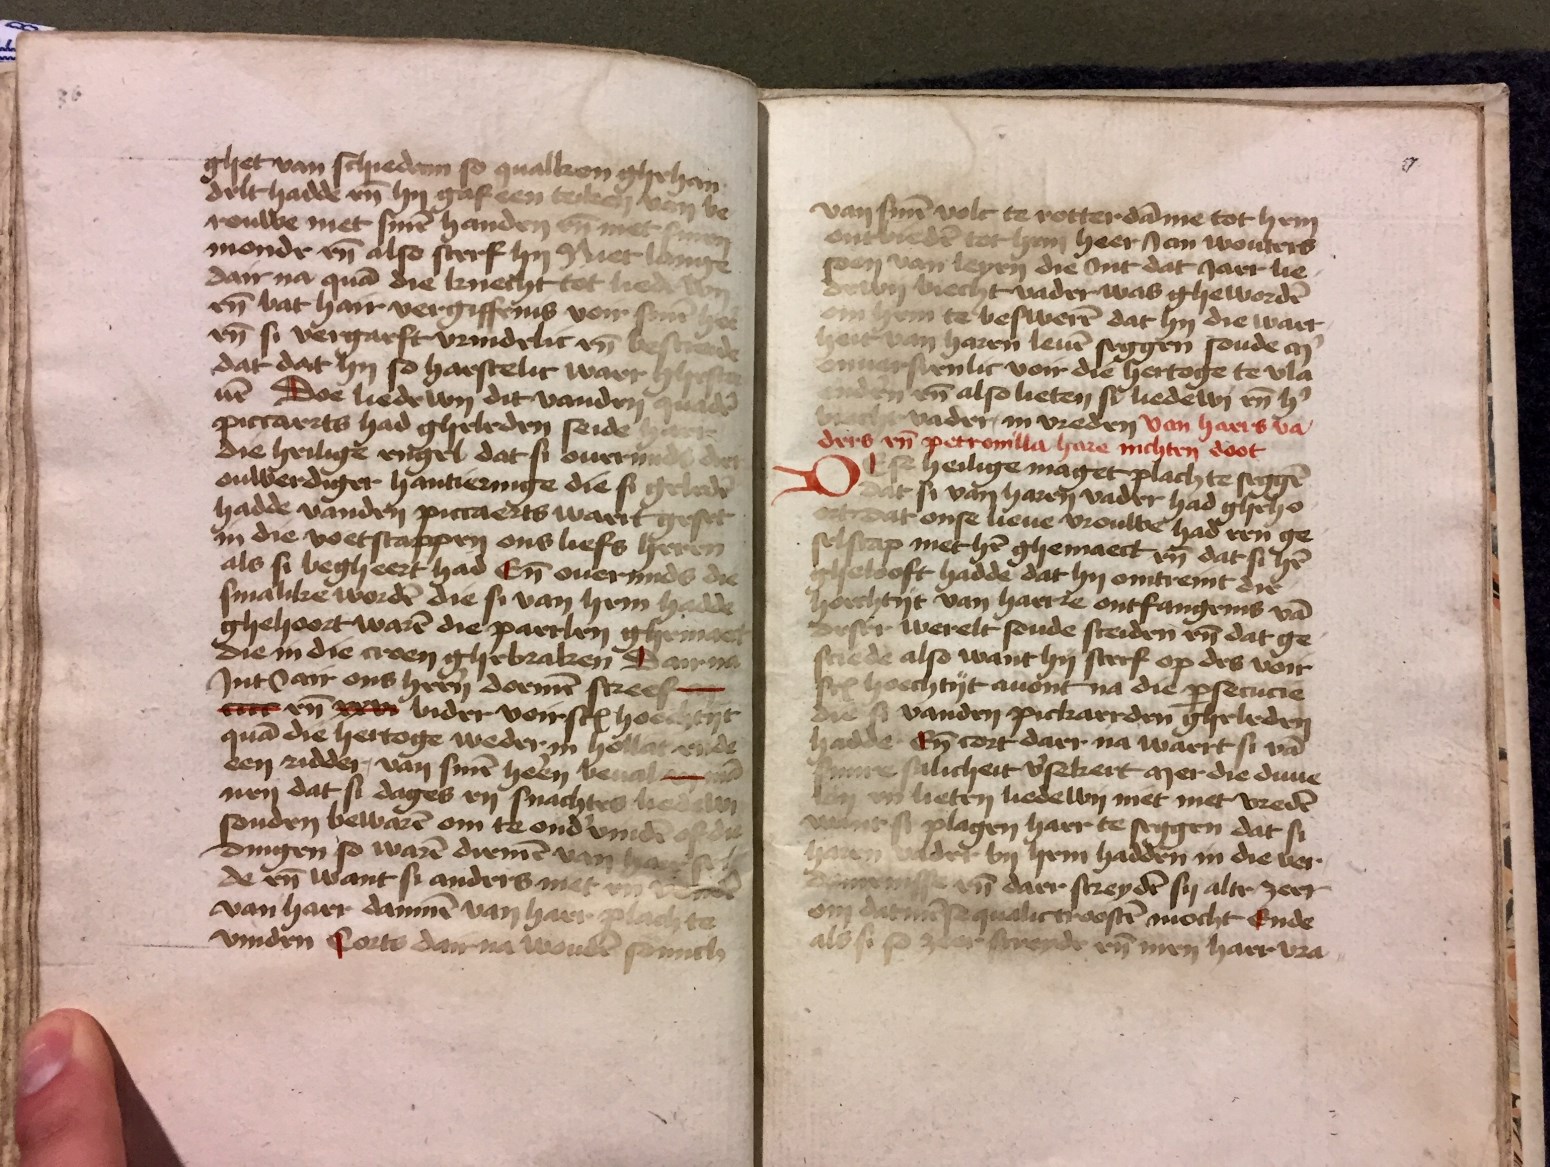 36
ghet van schiedam so qualken ghehan
delt hadde eñ hij gaf een teiken van be
rouwe met sinē handen eñ met sinen
monde eñ also sterf hij Niet lange
dair na quā die knecht tot liedewij
eñ bat hair vergiffenis voir sinē
eñ si vergaeft vrindelic eñ bescreide
dat dat hij so haestelic waer
uē Doe liedewij dit vanden quadē
piccaerts had gheleden seide haer
die heilige engel dat si ouermids der
onwerdiger hantieringe die si geledē
hadde vanden piccaerts waert geset
in die voetstappen ons liefs heren
als si begheert had Eñ ouermids die
smalike wordē die si van hem hadde
ghehoort warē die paerlen ghemaect
die in die croen ghebraken Dair na
Int Jair ons heren doemē screef
eñ bider voirscr hoechtijt
quā die hertoge weder in hollāt ende
een ridder van sinē heren beual
nen dat si dages eñ snachtes liedewij
souden bewarē om te ond'vindē of die
dingen so warē diemē van haer sei
de eñ want si anders niet en
van haer dannē van haer plach te
vinden Corts dair na woudē sommich
van sinē volc te rotterdāme tot hem
ontbiedē tot hem heer Jan wouters
soen van leyen die Int dat Jaer lie
dewij biecht vader was ghewordē
om hem te beswerē dat hij die waer
heit van haren leuē seggen soude
onuersienlic voir die hertoge te vla
enden eñ also lieten si liedewi eñ h'
biecht vader in vreden Van haers va
ders eñ petronilla hare nichten doot
Dese heilige maget plach te seggē
dat si van haren vader had gheho
ert dat onse lieue vrouwe had een ge
selscap met hē ghemaect eñ dat si hē
ghelooft hadde dat hij omtrent die
hoechtijt van haerre ontfangenis vā
deser werelt soude sceiden eñ dat ge
sciede also want hij sterf op des voir
scr hoechtijt auont na die psecucie
die si vanden pickaerden gheleden
hadde Eñ cort daer na waert si vā
sinre salicheit v'sekert Mer die duue
len en lieten liedewij niet met vredē
want si plagen haer te seggen dat si
haren vader bij hem hadden in die ver
domenisse eñ daer screydē sij alte zeer
om datmēse qualic troostē mocht Ende
als si so zeer screyde eñ men haer vra